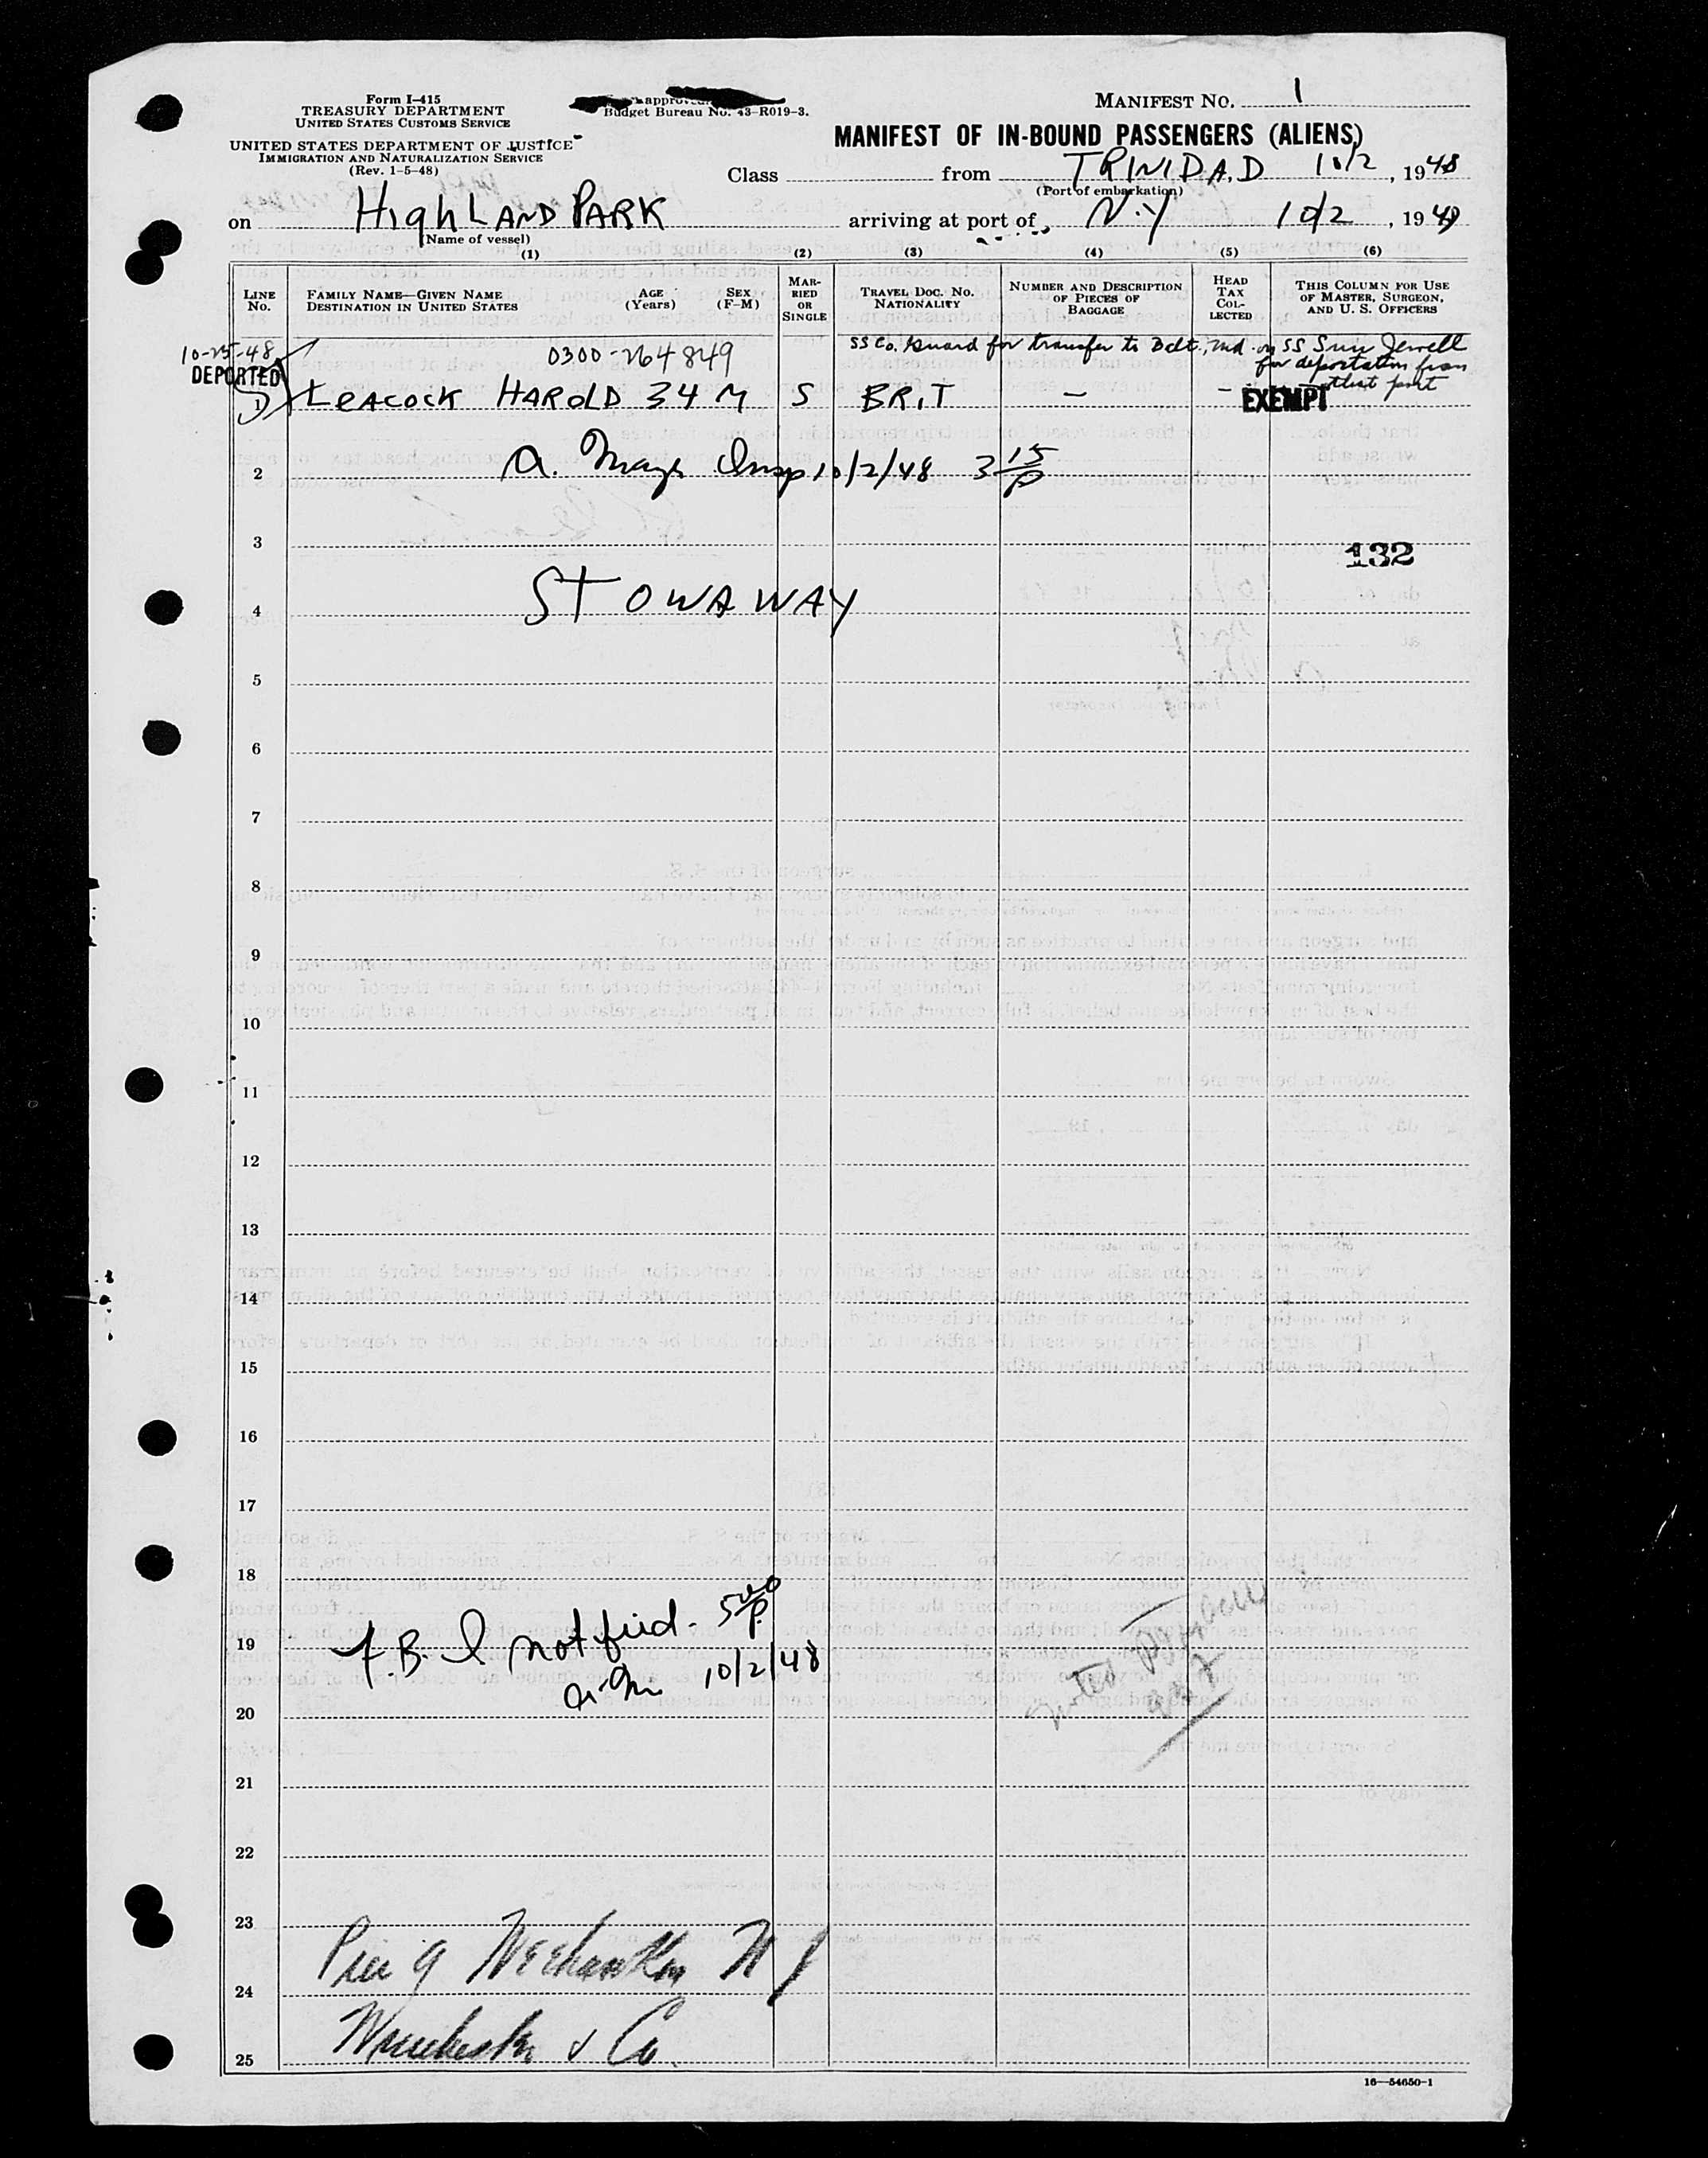 Form I-415
TREASURY DEPARTMENT
UNITED STATES CUSTOMS SERVICE
UNITED STATES DEPARTMENT OF JUSTICE
IMMIGRATION AND NATURALIZATION SERVICE
(Rev. 1-5-48)
Budget Bureau No. 43-R019-3.
MANIFEST NO. 1
MANIFEST OF IN-BOUND PASSENGERS (ALIENS)
Class from TRINIDAD 10/2, 1948
(Port of embarkation)
on HighLAND PARK arriving at port of N.Y 10/2, 19
(Name of vessel)
(1) (2) (3) (4) (5) (6)
LINE No. FAMILY NAME—GIVEN NAME DESTINATION IN UNITED STATES AGE (Years) SEX (F-M) MARRIED OR SINGLE TRAVEL DOC. NO. NATIONALITY NUMBER AND DESCRIPTION OF PIECES OF BAGGAGE HEAD TAX COLLECTED THIS COLUMN FOR USE OF MASTER, SURGEON, AND U. S. OFFICERS
10-25-48 0300-264849 SS Co. Guard for transfer to Md. on SS Jewell
DEPORTED for deportation from
that port
1 LEACOCK HAROLD 34 M S BRIT — - EXEMPT
2 A. Insp 10/2/48 3 15/P
3 132
4 STOWAWAY
5
6
7
8
9
10
11
12
13
14
15
16
17
18
19 F.B.I notified. 5 00/P
10/2/48
20
21
22
23
Pier 9 Weehawken N J
24
& Co.
25
16—54650-1